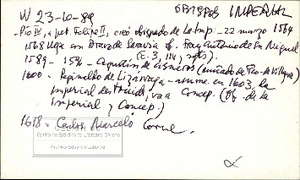 W 23-10-89 OBISPOS IMPERIAL
Pio IV, a pet. Felipe II, creó obispado de La Imp - 22 marzo 1564
1568 llega con Bravo de Saravia of. Fray Antonio de San Miguel
(E-3, 114, y sgts).
1589 - 1596 - Agustín de Cisneros
1600 - Reginaldo de Lizárraga - asume en 1603, la
Imperial destruida, va a Concep. (Ob. de la
Imperial y Concep.)
1618 - Carlos Marcelo Corne